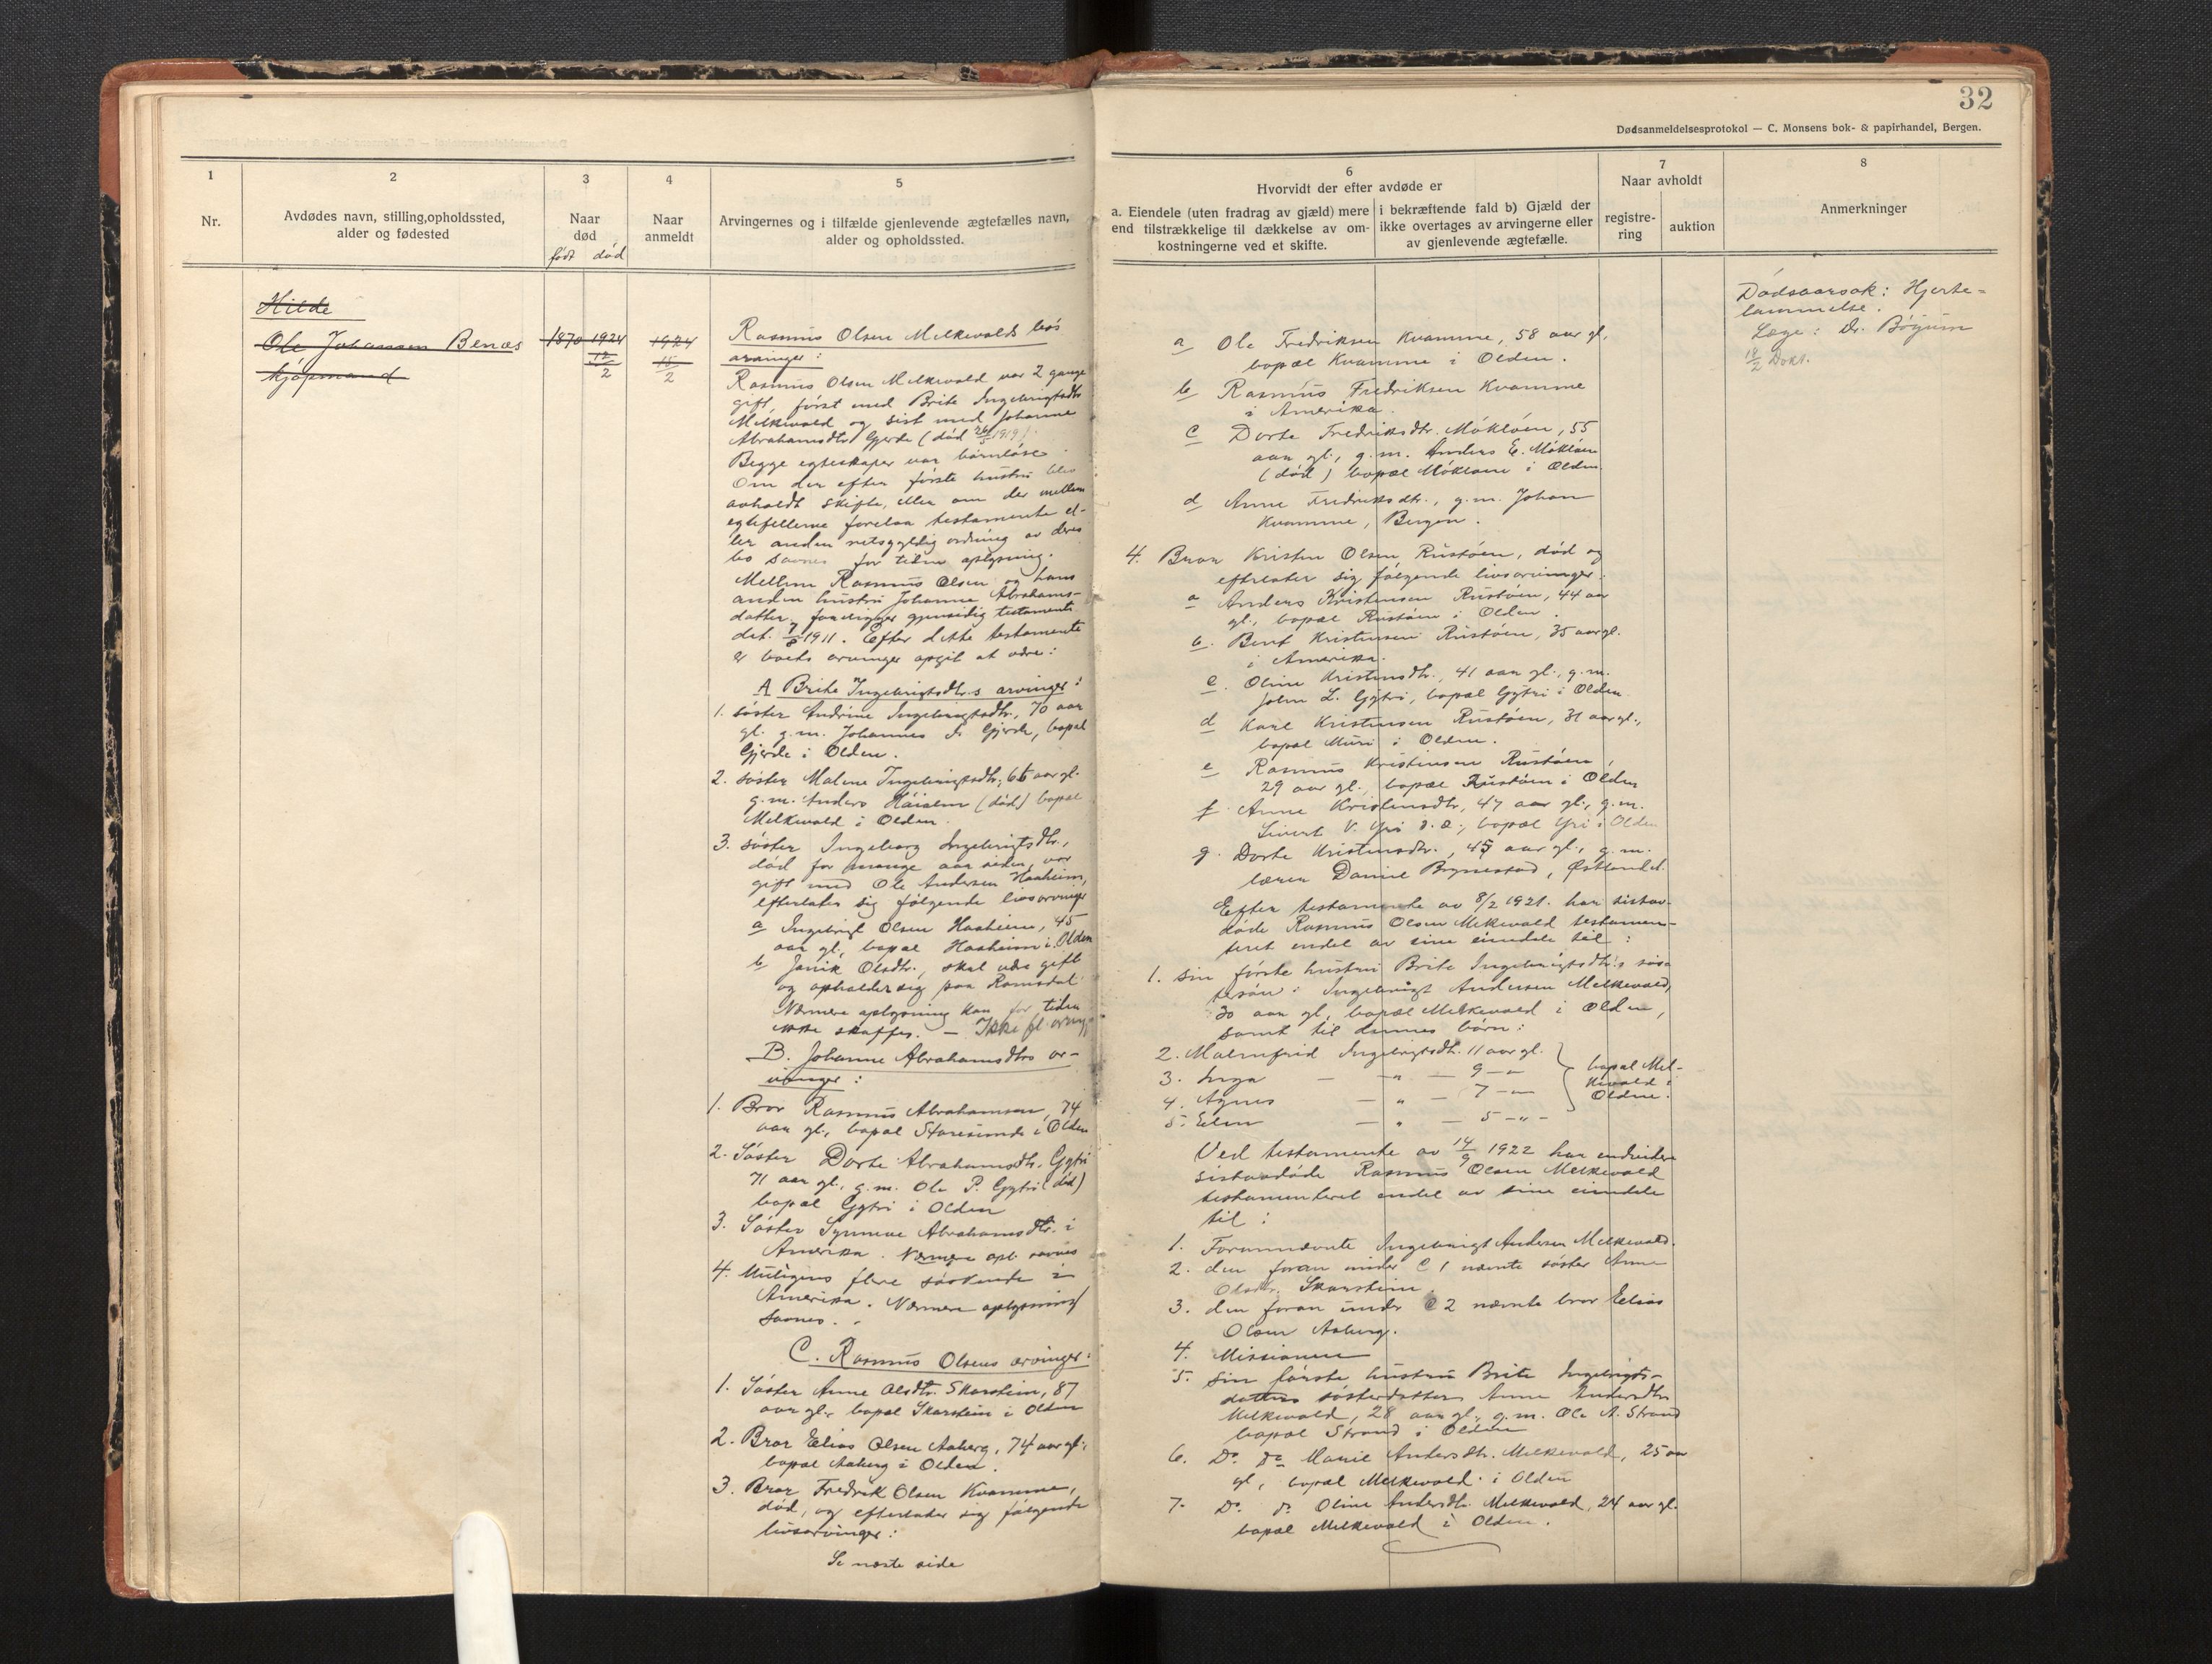 32
Dødsanmeldelsesprotokol — C. Monsens bok- & papirhandel, Bergen.
1
Nr.
2
Avdødes navn, stilling, opholdssted,
alder og fødested
3
Naar
død
født død
4
Naar
anmeldt
5
Arvingernes og i tilfælde gjenlevende ægtefælles navn,
alder og opholdssted.
6
Hvorvidt der efter avdøde er
a. Eiendele (uten fradrag av gjæld) mere
end tilstrækkelige til dækkelse av om-
kostningerne ved et skifte.
i bekræftende fald b) Gjæld der
ikke overtages av arvingerne eller
av gjenlevende ægtefælle.
7
Naar avholdt
registre-
ring
auktion
8
Anmerkninger
Hilde
Ole Johansen Benæs
kjøpmand
1870 1924 12/2
1924 15/2
Rasmus Olsen Melkevolds bos
arvinger:
Rasmus Olsen Melkevold var 2 gange
gift, først med Brite Ingebrigtsdtr
Melkevold og sist med Johanne
Abrahamsdtr Gjerde (død 1919).
Begge egteskaper var barnløse.
Om der efter første hustru blev
avholdt skifte, eller om der mellem
egtefellerne forelaa testamente el-
ler anden retsgyldig ordning av deres
bo savnes for tiden oplysning.
Mellem Rasmus Olsen og hans
anden hustru Johanne Abrahams-
datter foreligger gjensidig testamente
dat. 1911. Efter dette testamente
er boets arvinger opgit at være:
A Brite Ingebrigtsdtr.s arvinger:
1. søster Andrine Ingebrigtsdtr., 70 aar
gl. g.m. Johannes Gjerde, bopæl
Gjerde i Olden.
2. søster Malene Ingebrigtsdtr., aar gl.
g.m. Anders (død) bopæl
Melkevold i Olden.
3. søster Ingeborg Ingebrigtsdtr.,
død for mange aar siden, var
gift med Ole Andersen Haaheim,
efterlater sig følgende livsarvinger
a Ingebrigt Olsen Haaheim, 45
aar gl., bopæl Haaheim i Olden
b Janik Olsdtr., skal være gift
og opholder sig paa Romsdal
Nærmere oplysning kan for tiden
ikke skaffes. — Ikke fl. arving
B. Johanne Abrahamsdtrs ar-
vinger:
1. Bror Rasmus Abrahamsen, 74
aar gl., bopæl i Olden
2. Søster Dorte Abrahamsdtr. Gytri
71 aar gl., g.m. Ole P. Gytri (død)
bopæl Gytri i Olden
3. Søster Synneve Abrahamsdtr. i
Amerika. Nærmere opl. savnes
4. Muligens flere søskende i
Amerika. Nærmere oplysning
savnes.
C. Rasmus Olsens arvinger:
1. Søster Anne Olsdtr. Skarstein, 87
aar gl., bopæl Skarstein i Olden
2. Bror Elias Olsen Aaberg, 74 aar gl.,
bopæl Aaberg i Olden.
3. Bror Fredrik Olsen Kvamme,
død, og efterlater sig følgende
livsarvinger:
Se næste side
a Ole Fredriksen Kvamme, 58 aar gl.,
bopæl Kvamme i Olden.
b Rasmus Fredriksen Kvamme
i Amerika.
c Dorte Fredriksdtr. Mökløen, 55
aar gl., g.m. Anders E. Mökløen
(død) bopæl Mökløen i Olden
d Anne Fredriksdtr., g.m. Johan
Kvamme, Bergen.
4. Bror Kristen Olsen Rustøen, død og
efterlater sig følgende livsarvinger:
a Anders Kristensen Rustøen, 44 aar
gl., bopæl Rustøen i Olden.
b. Bent Kristensen Rustøen, 35 aar gl.
i Amerika.
c. Oline Kristensdtr., 41 aar gl., g.m.
John L. Gytri, bopæl Gytri i Olden
d Karl Kristensen Rustøen, 31 aar gl.,
bopæl Muri i Olden.
e Rasmus Kristensen Rustøen,
29 aar gl., bopæl Rustøen i Olden
f Anne Kristensdtr, 47 aar gl., g.m.
Sivert V. Yri bopæl Yri i Olden
g. Dorte Kristensdtr., 45 aar gl., g.m.
lærer Daniel Brynestad, Østlandet.
Efter testamente av 8/2 1921. har sistav-
døde Rasmus Olsen Melkevold testamen-
teret endel av sine eiendele til:
1. sin første hustru Brite Ingebrigtsdtr.s søs-
tersøn: Ingebrigt Andersen Melkevold,
30 aar gl., bopæl Melkevold i Olden,
samt til dennes børn:
2. Malmfrid Ingebrigtsdtr. 11 aar gl.
3. Inga — " — 9 — "
4. Agnes — " — 7 — "
5. Elden — " — 5 — " —
bopæl Mel-
kevold i
Olden.
Ved testamente av 14/9 1922 har endvidere
sistavdøde Rasmus Olsen Melkevold
testamenteret endel av sine eiendele
til:
1. Forannævnte Ingebrigt Andersen Melkevold.
2. den foran under C 1 nævnte søster Anne
Olsdtr. Skarstein
3. den foran under C 2 nævnte bror Elias
Olsen Aaberg.
4. Missionen
5. sin første hustru Brite Ingebrigts-
datters søsterdatter Anne Andersdtr
Melkevold, 28 aar gl., g.m. Ole A. Strand
bopæl Strand i Olden
6. Do. do Marie Andersdtr. Melkevold, 25 aar
gl., bopæl Melkevold i Olden
7. Do. do. Oline Andersdtr. Melkevold, 24 aar gl.
bopæl Melkevold i Olden.
Dødsaarsak: Hjerte-
lammelse.
Læge: Dr. Bøyum
18/2 Dokt.